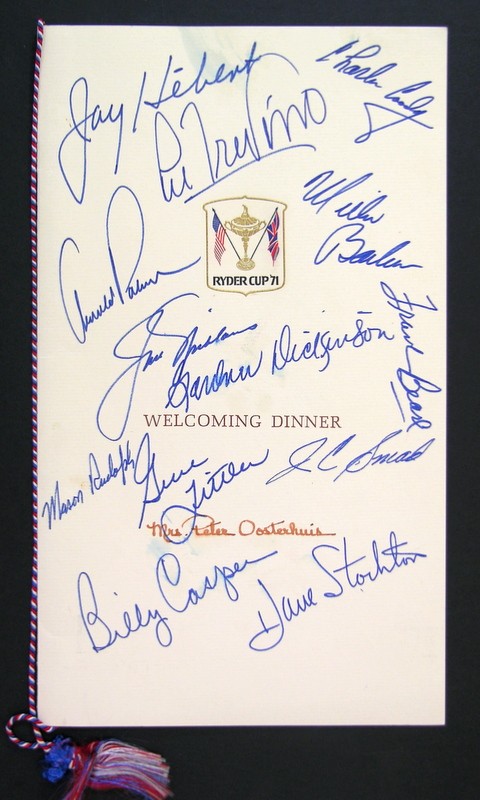 Jay Hebert
Charles Coody
Lee Trevino
Miller
Barber
RYDER CUP '71
Arnold Palmer
Jack Nicklaus
Gardner Dickinson
Frank Beard
WELCOMING DINNER
Mason Rudolph
Gene
Littler
J C Snead
Mrs. Peter Oosterhuis
Billy Casper
Dave Stockton